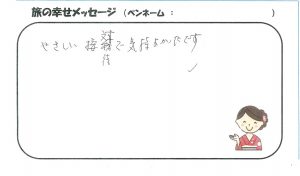 旅の幸せメッセージ （ペンネーム： ）
やさしい接待で気持よかったです